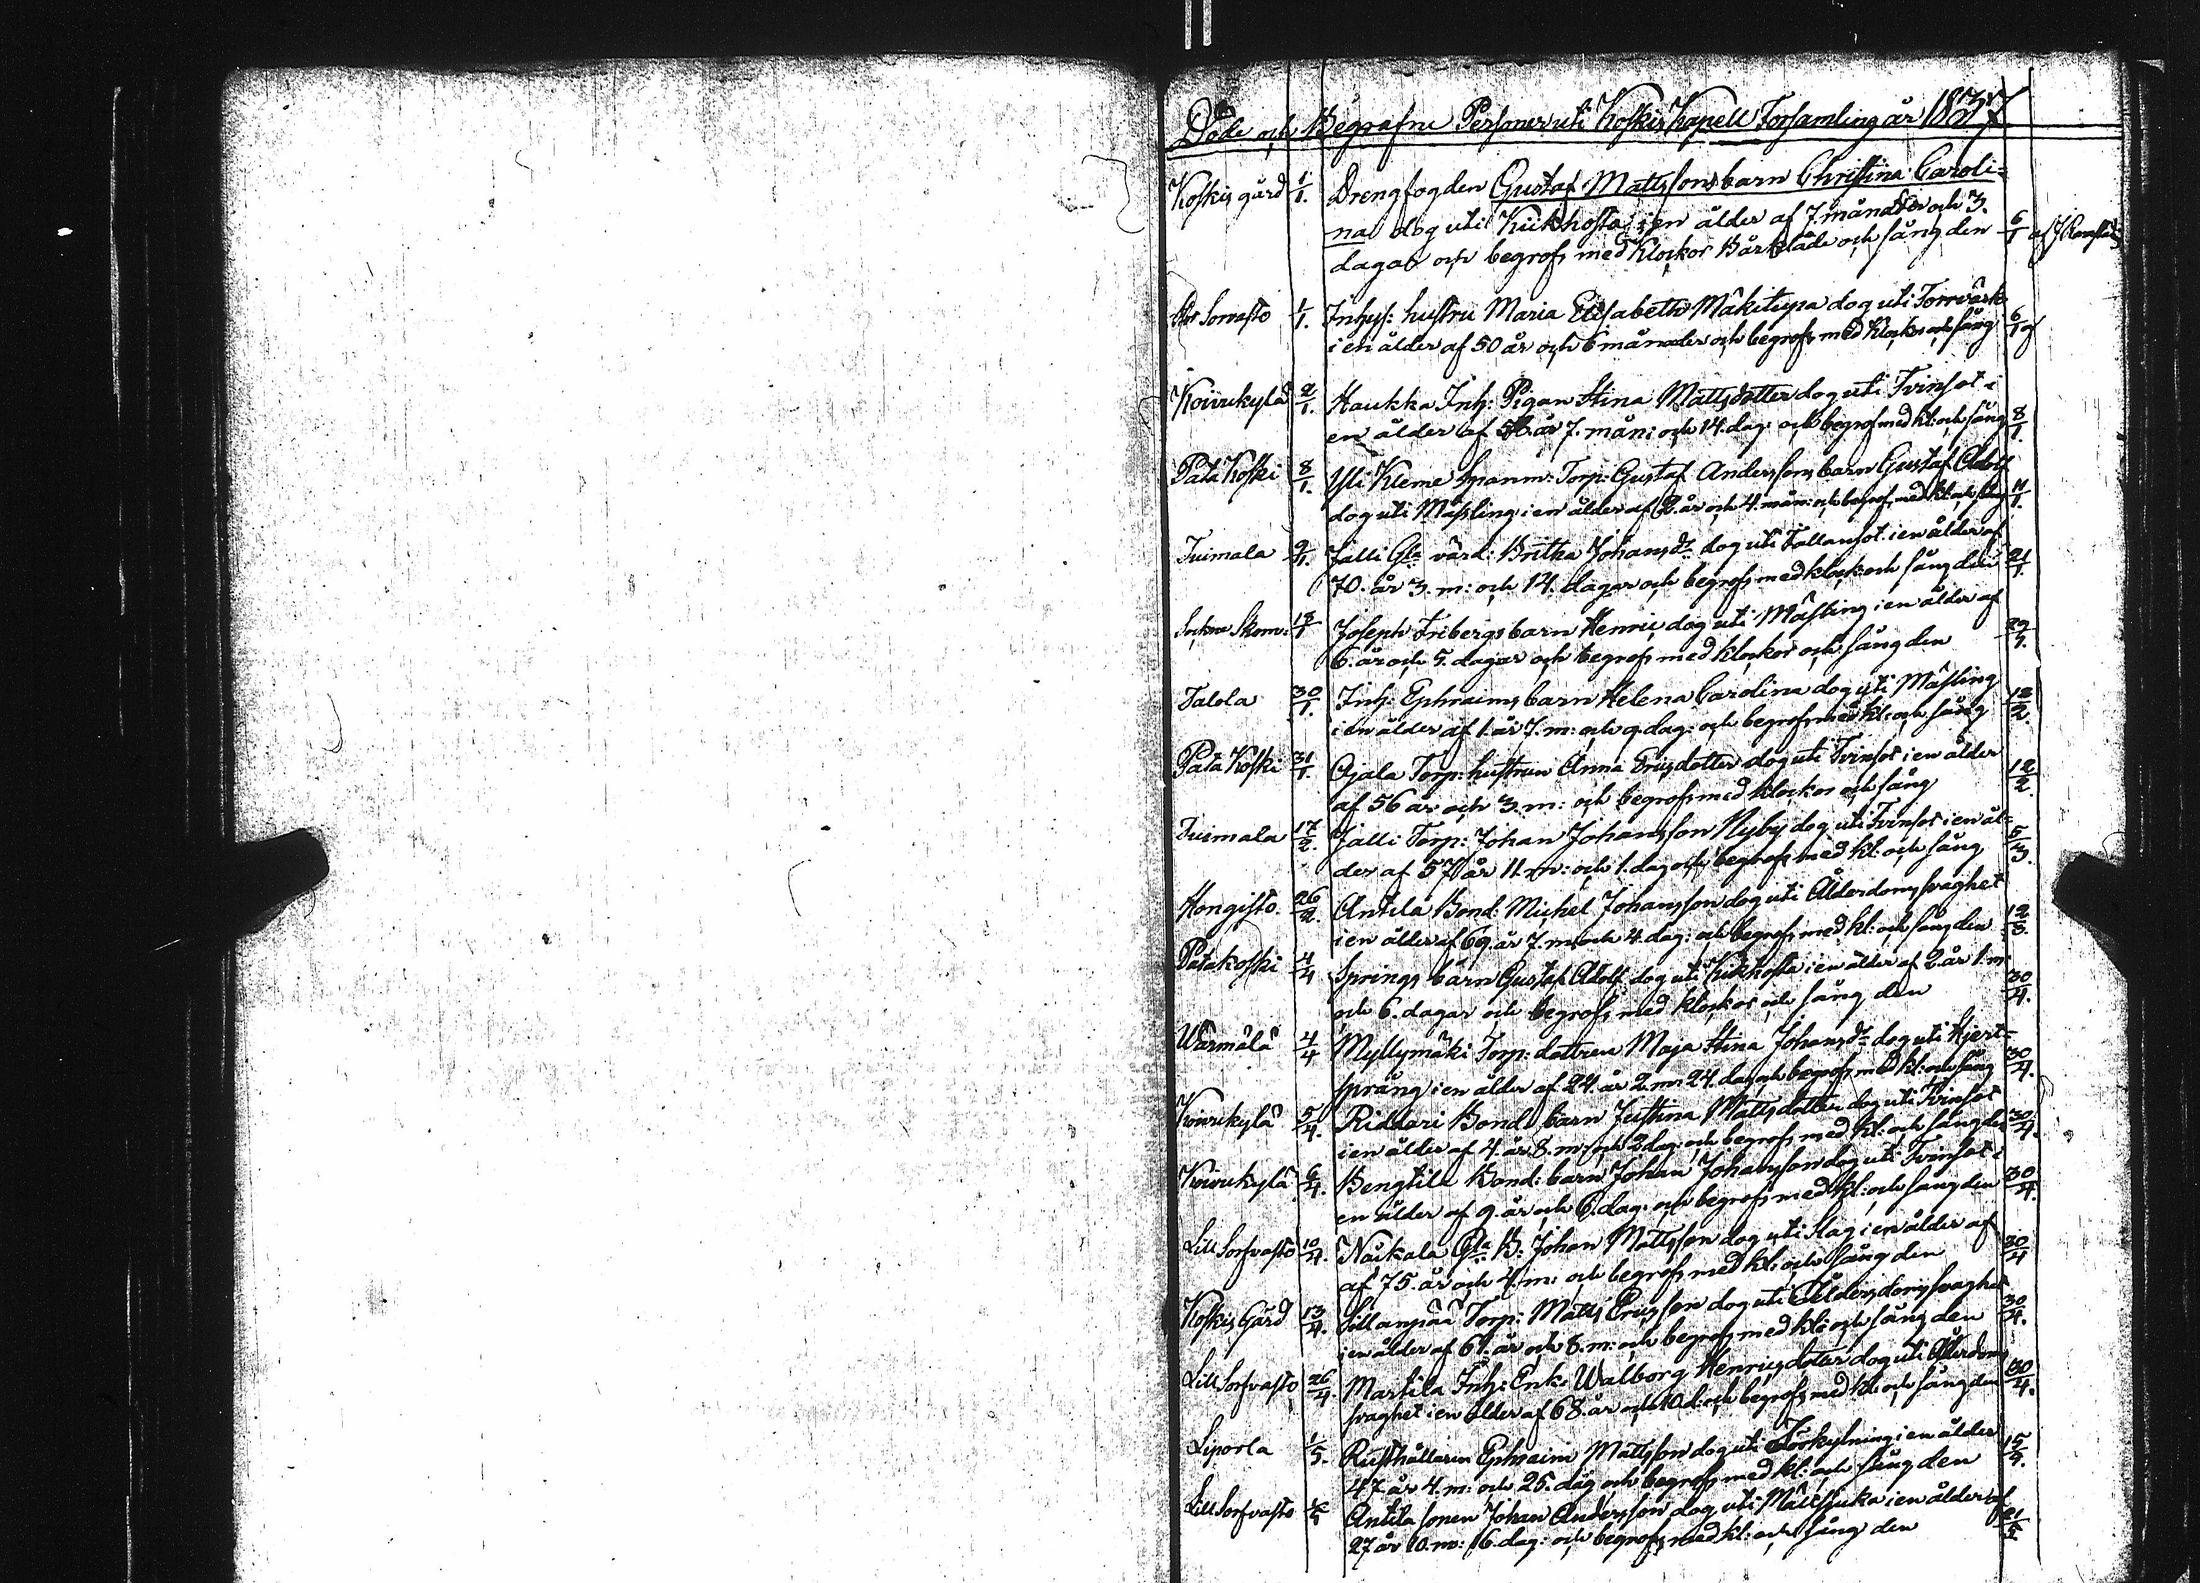 Döde och Begrafne Personer uti Koskis Kapell Forsamling år 1837
Koskis gård 1/1. Drengfogden Gustaf Mattssons barn Christina Caroli=
na dog uti Kikhosta i en ålder af 7 månader och 3.
dagar och begrofs med Klockor Bårkläde och sång den 6/1
Stor Sorvasto 1/1. Inhys: hustru Maria Elisabeth Mäkitupa dog uti Torrvärk
i en ålder af 50 år och 6 månader och begrofs med klockor och sång 6/1
Koivukylä 2/1. Haukka Inh: Pigan Stina Mattsdotter dog uti Tvinsot i
en ålder af år 7. mån: och 14. dag: och begrofs med kl: och sång 8/1.
Pata Koski 8/1. Yli Kleme Spanm: Torp: Gustaf Anderssons barn Gustaf Adolf
dog uti Mässling i en ålder af 2. år och 4. mån: och begrofs med kl: och sång 11/1.
Tuimala 9/1. Jalli Gla värd: Britha Johansdr dog uti Fallansot i en ålder af
70. år 3. m: och 14. dagar och begrofs med klock: och sång den 21/1.
Sockne Skom: 18/1 Joseph Fribergs barn Henric dog uti Mässling i en ålder af
6. år och 5. dagar och begrofs med klockor och sång den 29/1.
Talola 30/1. Inh: Ephraims barn Helena Carolina dog uti Mässling
i en ålder af 1. år 7. m: och 9. dag: och begrofs med kl: och sång 12/2.
Pata Koski 31/1. Ojala Torp: hustrun Anna Ericsdotter dog uti Tvinsot i en ålder
af 56 år och 3. m: och begrofs med klockor och sång 12/2.
Tuimala 17/2. Jalli Torp: Johan Johansson Nyby dog uti Tvinsot i en ål=
der af 57 år 11. m: och 1. dag och begrofs med kl: och sång 5/3.
Hongisto. 26/2. Antila Bond: Michel Johansson dog uti Ålderdomssvaghet
i en ålder af 69. år 7. m: och 4. dag: och begrofs med kl: och sång den 12/3.
Patakoski 4/4 Springs barn Gustaf Adolf dog uti Kikhosta i en ålder af 2. år 1. m:
och 6. dagar och begrofs med klockor och sång den 30/4.
Wärmälä 4/4 Myllymäki Torp: dottren Maja Stina Johansdr dog uti Hjert=
språng i en ålder af 24. år 2. m: 24. dag och begrofs med kl: och sång 30/4.
Koivukylä 5/4. Riddari Bond: barn Justina Mattsdotter dog uti Tvinsot
i en ålder af 4. år 8. m: och 2 dag: och begrofs med kl: och sång den 30/4.
Koivukylä 6/4. Bengtila Bond: barn Johan Johansson dog uti Tvinsot i
en ålder af 9. år och 6. dag: och begrofs med kl: och sång den 30/4.
Lill Sorfvasto 10/4. Naukala Gla B: Johan Mattsson dog uti Slag i en ålder af
af 75. år och 4. m: och begrofs med kl: och sång den 30/4
Koskis Gård 13/4. Sillanpää Torp: Matts Ericsson dog uti Ålderdomssvaghet
i en ålder af 61. år och 8. m: och begrofs med kl: och sång den 30/4.
Lill Sorfvasto 26/4. Martila Inh: Enk: Walborg Henricsdotter dog uti Ålderdoms
svaghet i en ålder af 68. år och 10 d: och begrofs med kl: och sång den 30/4.
Liporla 1/5. Rusthållaren Ephraim Mattsson dog uti Förkylning i en ålder
47 år 4. m: och 25. dag och begrofs med kl: och sång den 15/5.
Lill Sorfvasto Antila sonen Johan Andersson dog uti i en ålder af
27 år 10. m: 16. dag: och begrofs med kl: och sång den 21/5